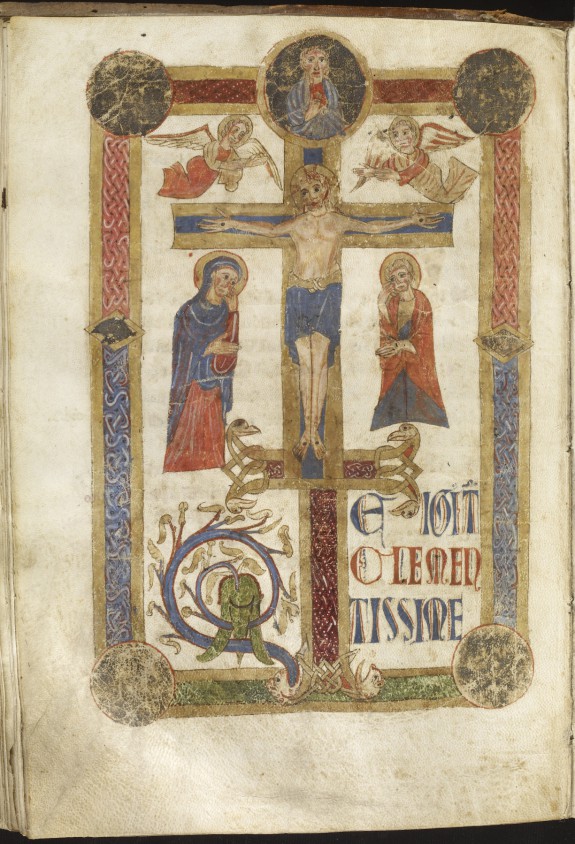 TE IGIT᷑
CLEMEN
TISSIME